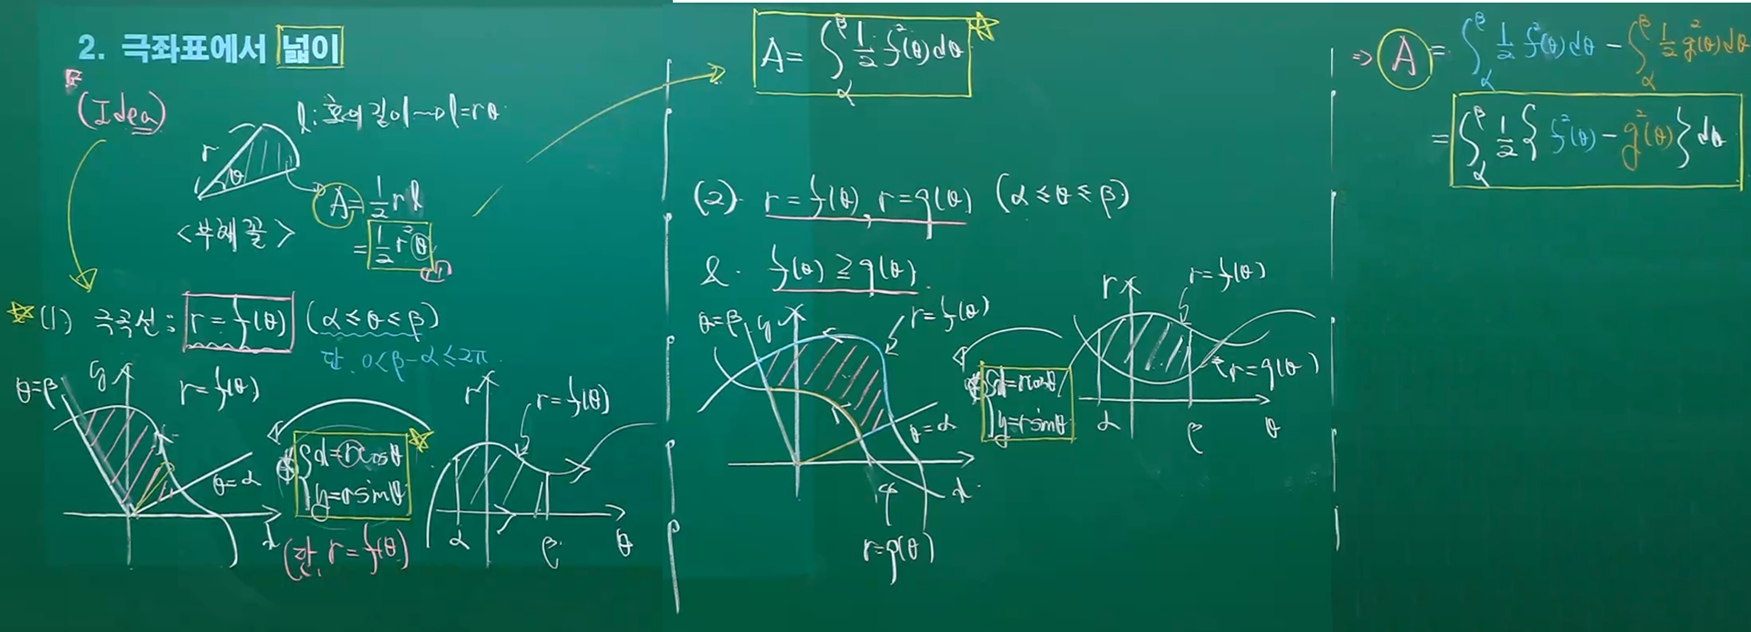 2. 극좌표에서 넓이
(Idea)
l : 호의 길이 → l = rθ
r
θ
A = 1/2 r l
= 1/2 r²θ
<부채꼴>
(1) 극곡선 : r = f(θ) (α ≤ θ ≤ β)
단, 0 < β - α ≤ 2π
θ = β
y
r = f(θ)
θ = α
x
{ x = r cosθ
y = r sinθ
(단, r = f(θ))
r
r = f(θ)
α
β
θ
A = ∫_α^β 1/2 f²(θ) dθ
(2) r = f(θ), r = g(θ) (α ≤ θ ≤ β)
& f(θ) ≥ g(θ)
θ = β
y
r = f(θ)
θ = α
x
r = g(θ)
{ x = r cosθ
y = r sinθ
r
r = f(θ)
r = g(θ)
α
β
θ
⇒ A = ∫_α^β 1/2 f²(θ) dθ - ∫_α^β 1/2 g²(θ) dθ
= ∫_α^β 1/2 { f²(θ) - g²(θ) } dθ